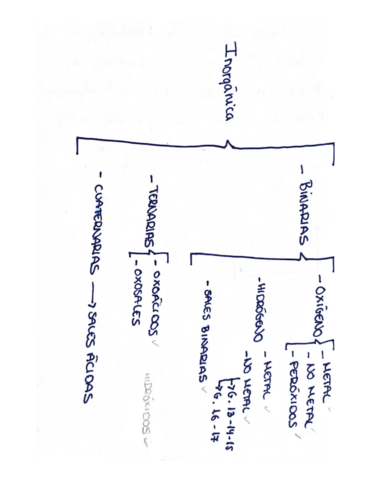 Inorgánica
- BINARIAS
- OXÍGENO
- METAL ✓
- NO METAL ✓
- PERÓXIDOS ✓
- HIDRÓGENO
- METAL ✓
- NO METAL ✓
→ G. 13-14-15
→ G. 16-17
- SALES BINARIAS ✓
- TERNARIAS
- OXOÁCIDOS ✓
- OXOSALES
HIDRÓXIDOS ✓
- CUATERNARIAS → SALES ÁCIDAS